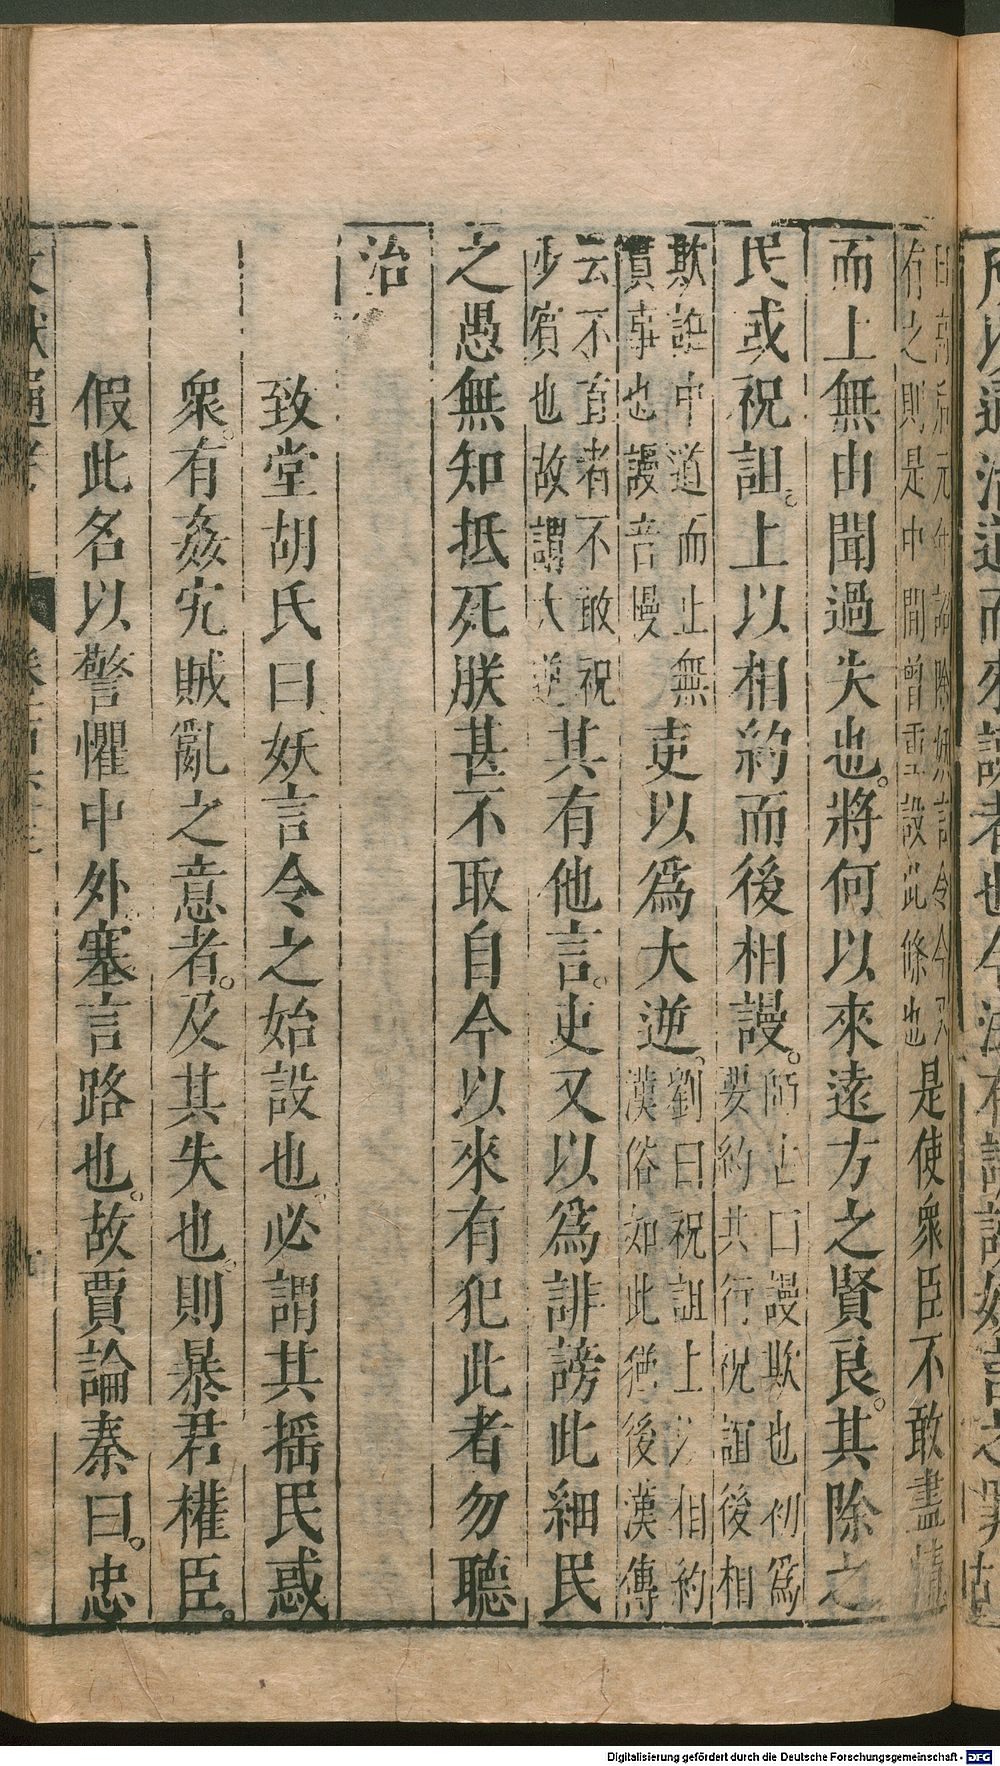 曰高后元年詔除妖言令今又
有之則是中間曾重設此條也是使衆臣不敢盡情
而上無由聞過失也將何以來遠方之賢良其除之
民或祝詛上以相約而後相謾師古曰謾欺也初爲
要約共行祝詛後相
欺誑中道而止無
實事也謾音慢吏以爲大逆劉曰祝詛上以相約
漢俗如此猶後漢傳
云不首者不敢祝
少賓也故謂大逆其有他言吏又以爲誹謗此細民
之愚無知抵死朕甚不取自今以來有犯此者勿聽
治
致堂胡氏曰妖言令之始設也必謂其搖民惑
衆有姦宄賊亂之意者及其失也則暴君權臣
假此名以警懼中外塞言路也故賈論秦曰忠
Digitalisierung gefördert durch die Deutsche Forschungsgemeinschaft - DFG